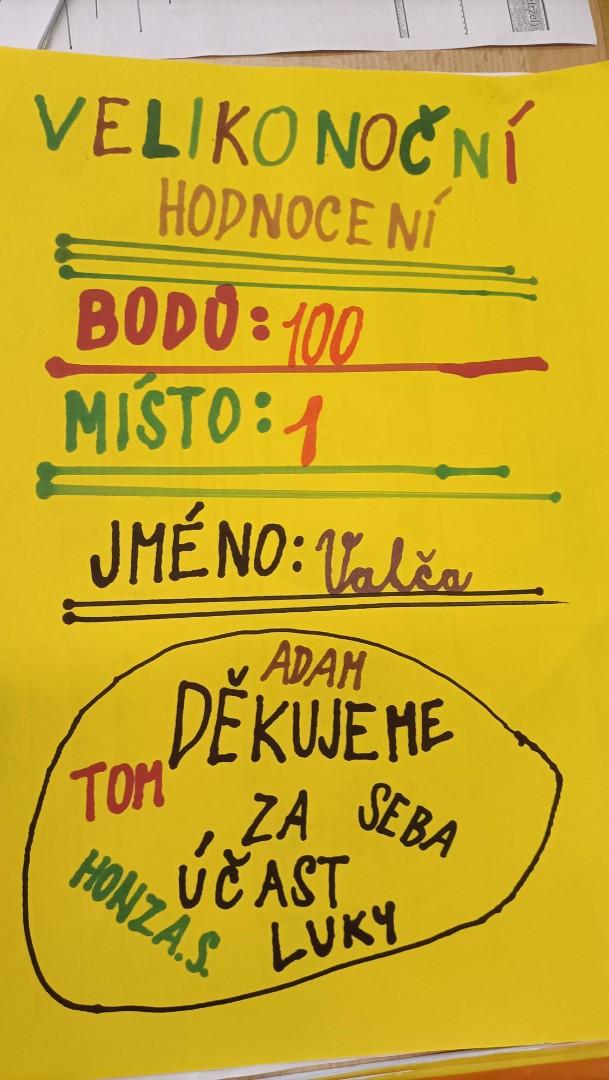 VELIKONOČNÍ
HODNOCENÍ
BODŮ: 100
MÍSTO: 1
JMÉNO: Valča
ADAM
DĚKUJEME
TOM
ZA SEBA
ÚČAST
HONZA.S.
LUKY